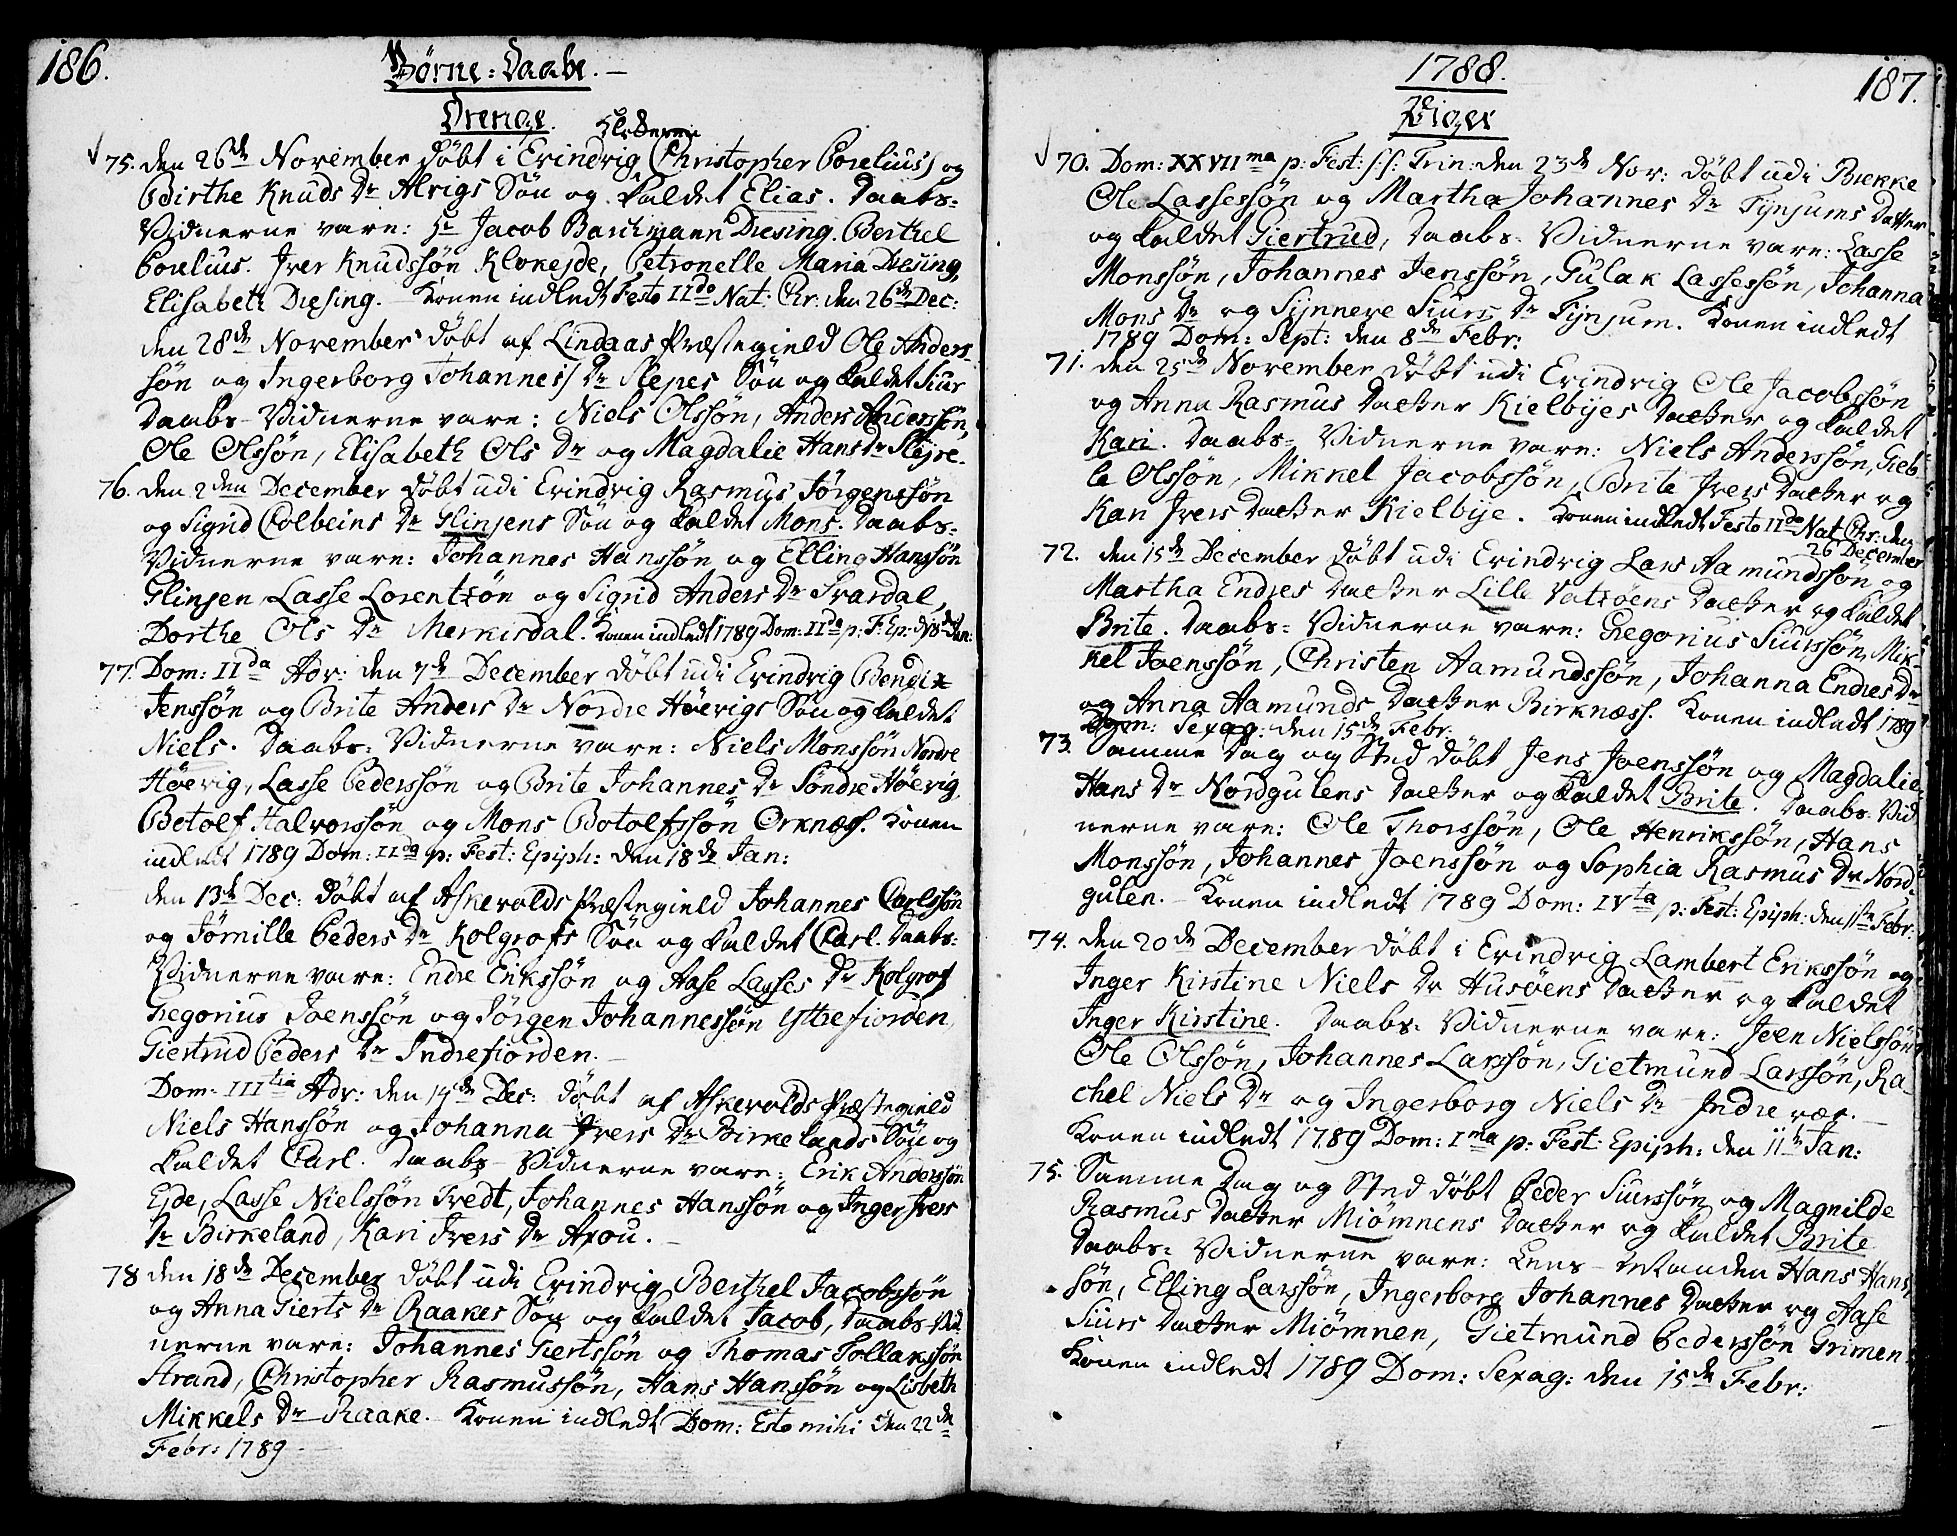 186.
Börne=Daabe.
Drenge.
75. den 26de November döbt i Evindvig Christopher Corelius og
Birthe Knuds Dr Alvigs Sön og kaldet Elias. Daabs=
Vidnerne vare: Hr Jacob Barchmann Diesing. Berthel
Corelius. Iver Knudssön Klokejde, Petronelle Maria Diesing,
Elisabeth Diesing. Konen indledt Festo IIdo Nat: Chr: den 26de Dec:
den 28de November döbt af Lindaas Præstegield Ole Anders
sön og Ingerborg Johannes Dr Slepes Sön og kaldet Siur
Daabs-Vidnerne vare: Niels Olssön, Anders Anderssön,
Ole Olssön, Elisabeth Ols Dr og Magdalie Hans Dr
76. den 2den December döbt udi Evindvig Rasmus Jörgenssön
og Sigrid Colbeins Dr Glinjens Sön og kaldet Mons. Daabs=
Vidnerne vare: Johannes Hanssön og Elling Hanssön
Glinjen, Lasse Lorentzön og Sigrid Anders Dr Svardal,
Dorthe Ols Dr Merkisdal. Konen indledt 1789 Dom: IIda p: F: Ep: d 18de Jan:
77. Dom: IIda Adv: den 7de December döbt udi Evindvig Bendix
Jenssön og Brite Anders Dr Nordre Höevigs Sön og kaldet
Niels. Daabs: Vidnerne vare: Niels Monssön Nordre
Höevig, Lasse Pederssön og Brite Johannes Dr Söndre Höevig,
Botolf Halvorssön og Mons Botolfssön Orknæss. Konen
indledt 1789 Dom: IIda p: Fest: Epiph: den 18de Jan:
den 13de Dec: döbt af Askevolds Præstegield Johannes Carlssön
og Jörnille Peders Dr Kolgrofs Sön og kaldet Carl. Daabs=
Vidnerne vare: Endre Erikssön og Aase Lasses Dr Kolgrof
Gregorius Joenssön og Jörgen Johannessön Ysttrefiorden,
Giertrud Peders Dr Indrefiorden.
Dom: IIItia Adv: den 14de Dec: döbt af Askevolds Præstegield
Niels Hanssön og Johanna Ivers Dr Birkelands Sön og
kaldet Carl. Daabs-Vidnerne vare: Erik Anderssön
Ejde, Lasse Nielssön Tvedt, Johannes Hanssön og Inger Ivers
Dr Birkeland, Kari Ivers Dr
78 den 18de December döbt udi Evindvig Berthel Jacobssön
og Anna Gierts Dr Raakes Sön og kaldet Jacob, Daabs-Vid
nerne vare: Johannes Giertssön og Thomas Tollakssön
Strand, Christopher Rasmussön, Hans Hanssön og Lisbeth
Mikkels Dr Raake. Konen indledt Dom: Esto mihi den 22de
Febr: 1789
1788.
187.
Piger
70. Dom: XXVIIma p: Fest: s: s: Trin: den 23de Nov: döbt udi Brekke
Ole Lassessön og Martha Johannes Dr Tynjums Datter
og kaldet Giertrud, Daabs: Vidnerne vare: Lasse
Monssön, Johannes Jenssön, Gulak Lassessön, Johanna
Mons Dr og Synneve Siurs Dr Tynjum. Konen indledt
1789 Dom: Sept: den 8de Febr:
71. den 25de November döbt udi Evindvig Ole Jacobssön
og Anna Rasmus Datter Kielbyes Datter og kaldet
Kari. Daabs= Vidnerne vare: Niels Anderssön, Gieb
le Olssön, Mikkel Jacobssön, Brite Ivers Datter og
Kari Ivers Datter Kielbye. Konen indledt Festo IIdo Nat Chr: den
26 December
72. den 15de December döbt udi Evindvig Lars Aamundssön og
Martha Endres Datter Lille Vatzöens Datter og kaldet
Brite. Daabs= Vidnerne vare: Gregorius Siurssön, Mik-
kel Joenssön, Christen Aamundssön, Johanna Endres Dr
og Anna Aamunds Datter Birknæss. Konen indledt 1789
Dom: Sexag: den 15de Febr:
73. Samme Dag og Sted döbt Jens Joenssön og Magdalie
Hans Dr Nordgulens Datter og kaldet Brite. Daabs-Vid
nerne vare: Ole Thorssön, Ole Henrikssön, Hans
Monssön, Johannes Joenssön og Sophia Rasmus Dr Nord
gulen. - Konen indledt 1789 Dom: IVta p: Fest: Epiph: den 1ste Febr:
74. den 20de December döbt i Evindvig Lambert Erikssön og
Inger Kirstine Niels Dr Husöens Datter og kaldet
Inger Kirstine. Daabs: Vidnerne vare: Joen Nielssön
Ole Olssön, Johannes Larssön, Gietmund Larssön, Ra-
chel Niels Dr og Ingerborg Niels Dr Indre vær.
Konen indledt 1789 Dom: Ima p: Fest: Epiph: den 11te Jan:
75. Samme Dag og Sted döbt Peder Siurssön og Magnilde
Rasmus Datter Miömnens Datter og kaldet Brite
Daabs= Vidnerne vare: Lens-Manden Hans Hans
sön, Elling Larssön, Ingerborg Johannes Datter og Aase
Siurs Datter Miömnen, Gietmund Pederssön Grimen.
Konen indledt 1789 Dom: Sexag: den 15de Febr: